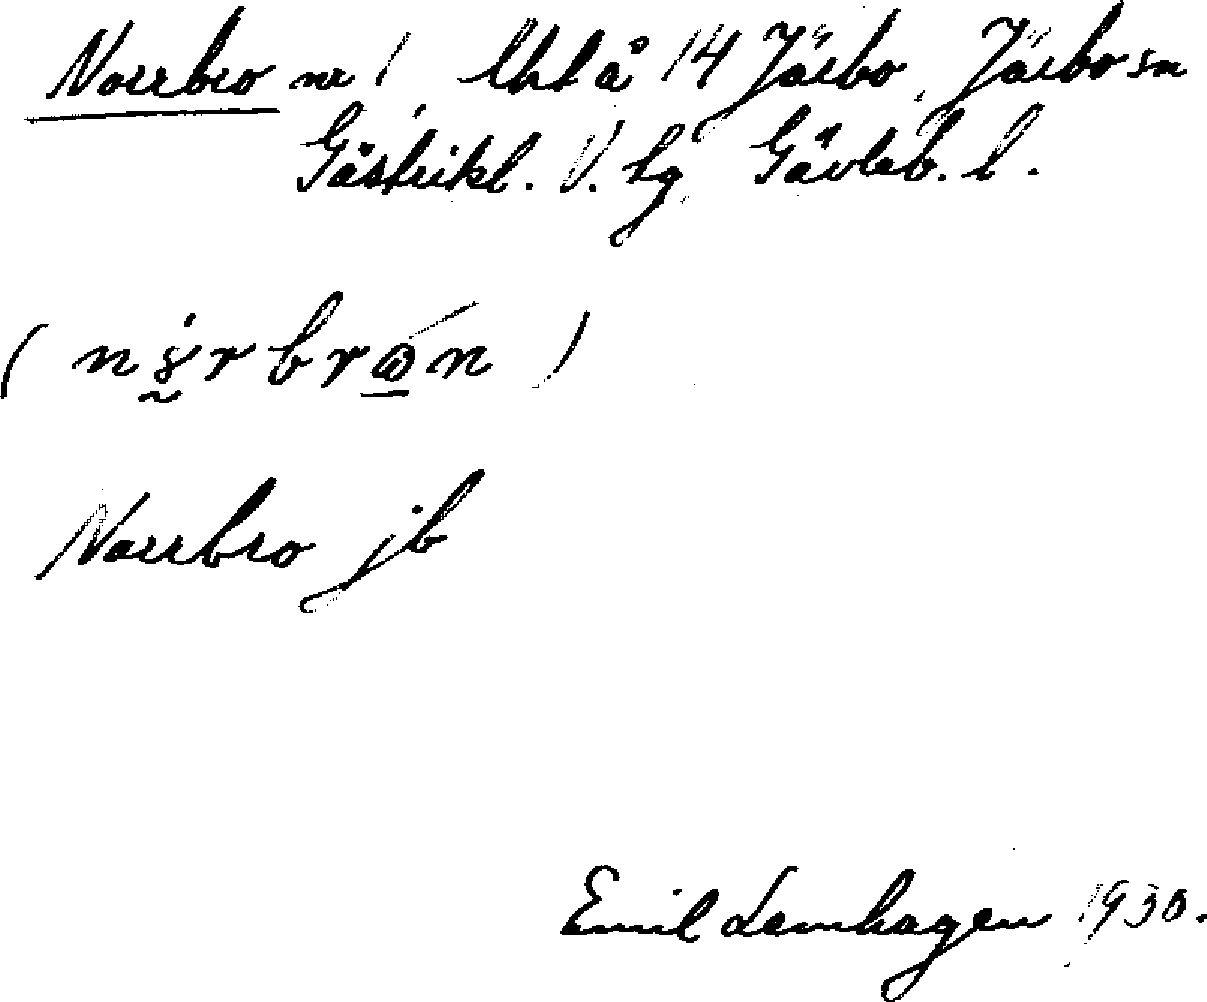 Norrbro nr 1 Järbo, Järbo sn
Gästrikl. V. hg Gävleb. l.
Norrbro jb
Emil Lemhagen 1930.